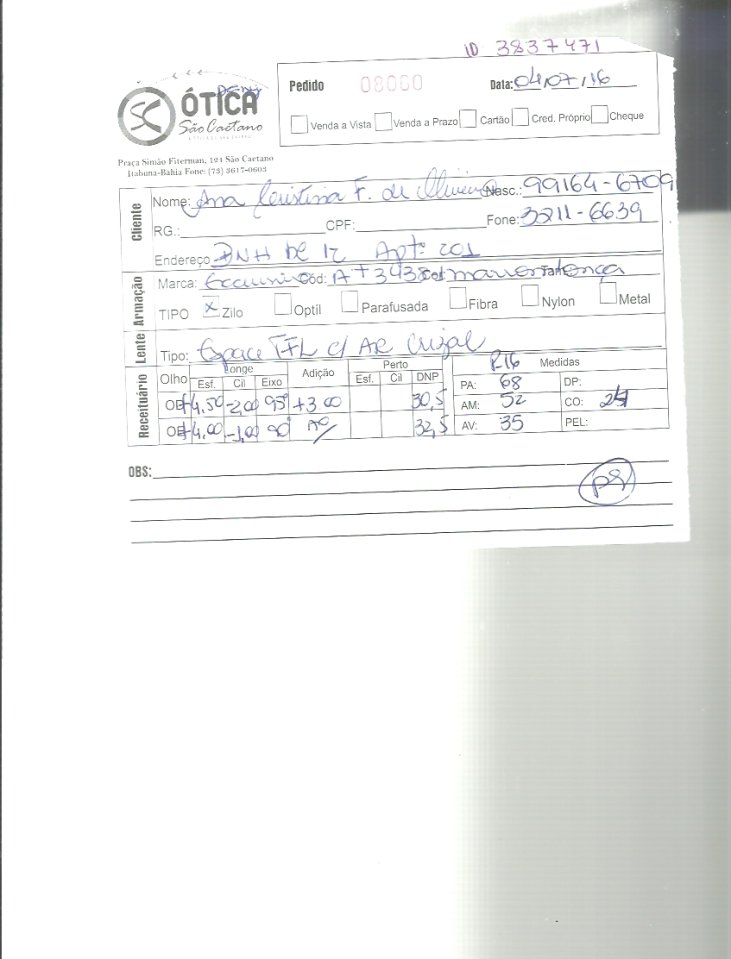 ID 3837471
Pedido 08000 Data: 04/07/16
ÓTICA
São Caetano
Venda a Vista Venda a Prazo Cartão Cred. Próprio Cheque
Praça Simão Fiterman, 121 São Caetano
Itabuna-Bahia Fone: (73) 3617-0603
Cliente
Nome: Ana Cristina F. de Oliveira Nasc.: 99164-6709
RG.: CPF: Fone: 3211-6639
Endereço BNH BL 12 Aptº 201
Armação
Marca: Cód: A+3438
TIPO X Zilo Optil Parafusada Fibra Nylon Metal
Lente
Tipo: Espace TFL c/ AR Crizal
Receituário
Olho Longe Adição Perto R16 Medidas
Esf. Cil Eixo Esf. Cil DNP PA: 68 DP:
OD +4,50 -2,00 95° +3,00 30,5 AM: 52 CO: 24
OE +4,00 -1,00 90° AO 32,5 AV: 35 PEL:
OBS: